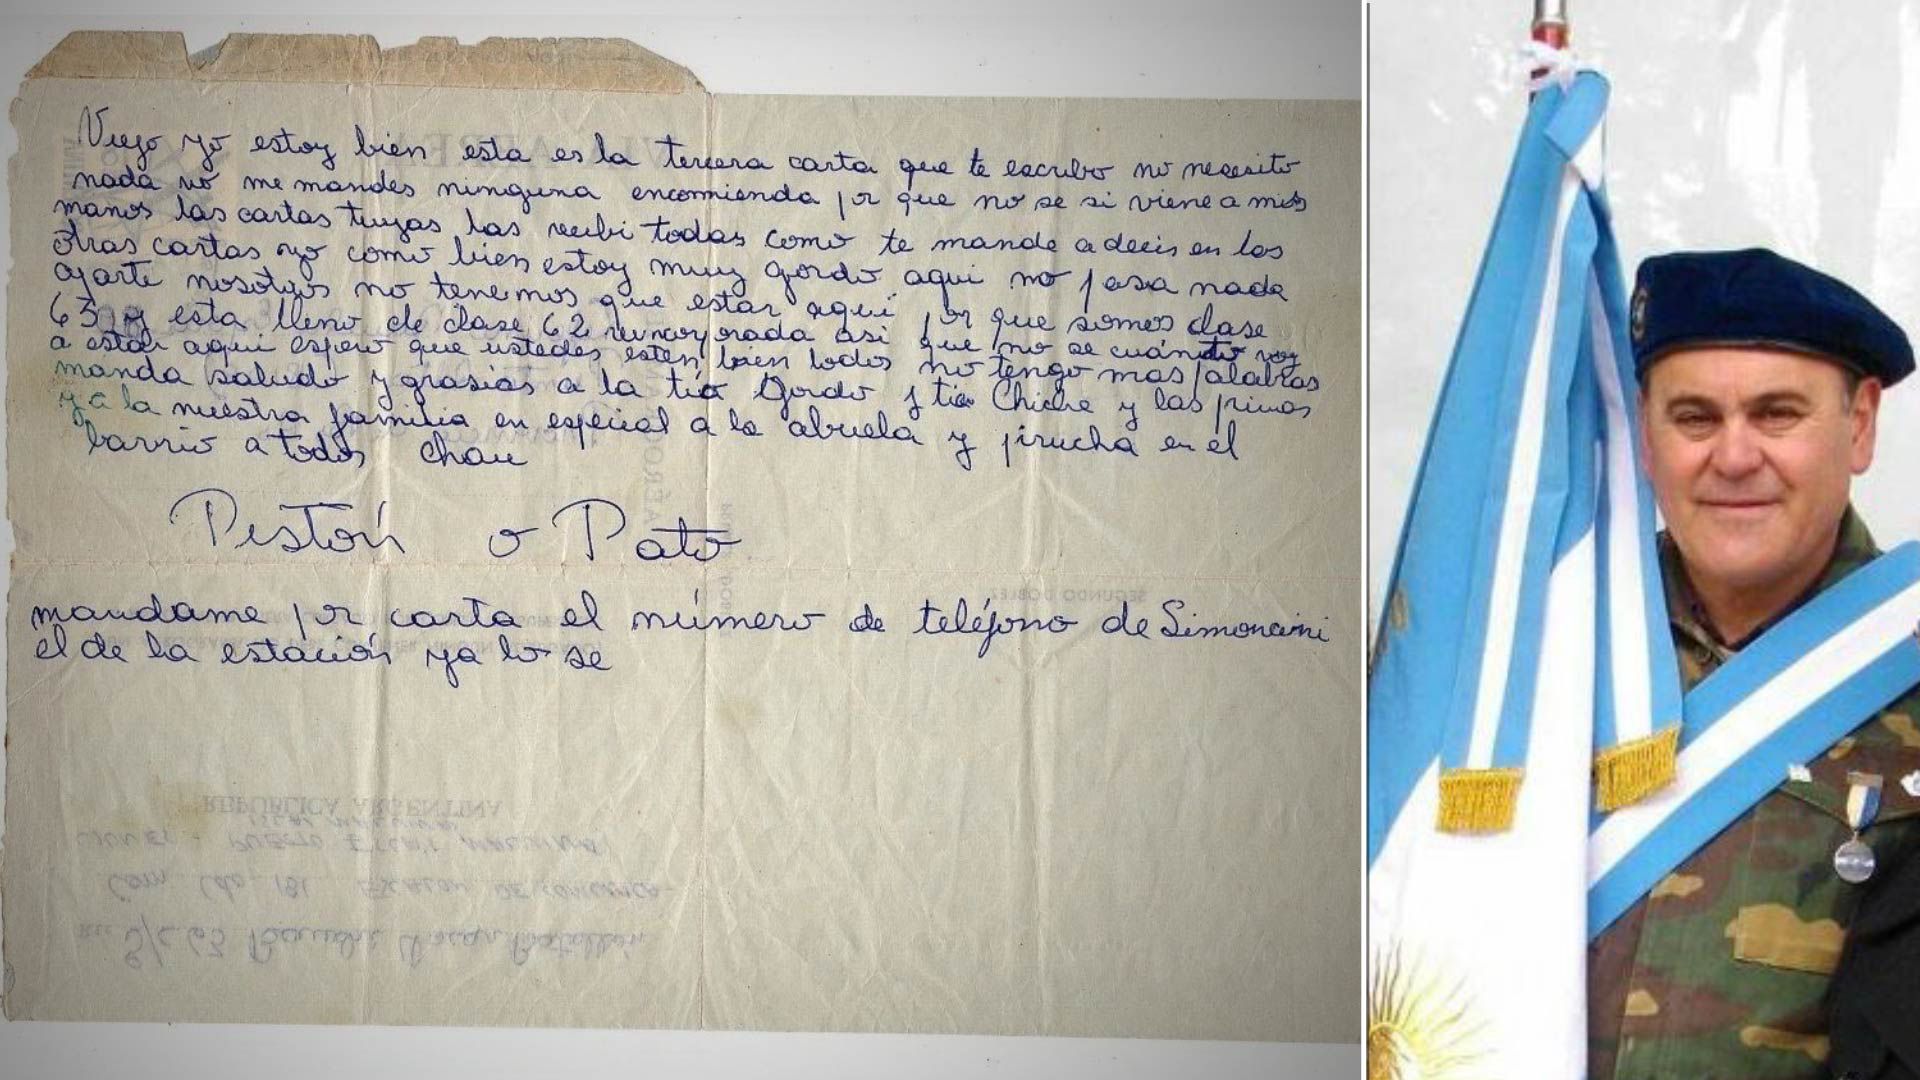 Viejo yo estoy bien esta es la tercera carta que te escribo no necesito
nada no me mandes ninguna encomienda por que no se si viene a mis
manos las cartas tuyas las recibi todas como te mande a decir en las
otras cartas yo como bien estoy muy gordo aqui no pasa nada
aparte nosotros no tenemos que estar aqui por que somos clase
63 y esta lleno de clase 62 reincorporada asi que no se cuándo voy
a estar aqui espero que ustedes esten bien todos no tengo mas palabras
manda saludo y grasias a la tia Gordo y tia Chiche y las primas
y a la nuestra familia en especial a la abuela y pirucha en el
barrio a todos chau
Pestón o Pato
mandame por carta el número de teléfono de Simoncini
el de la estación ya lo se
SEGUNDO DOBLEZ
REPUBLICA ARGENTINA
ISLAS MALVINAS